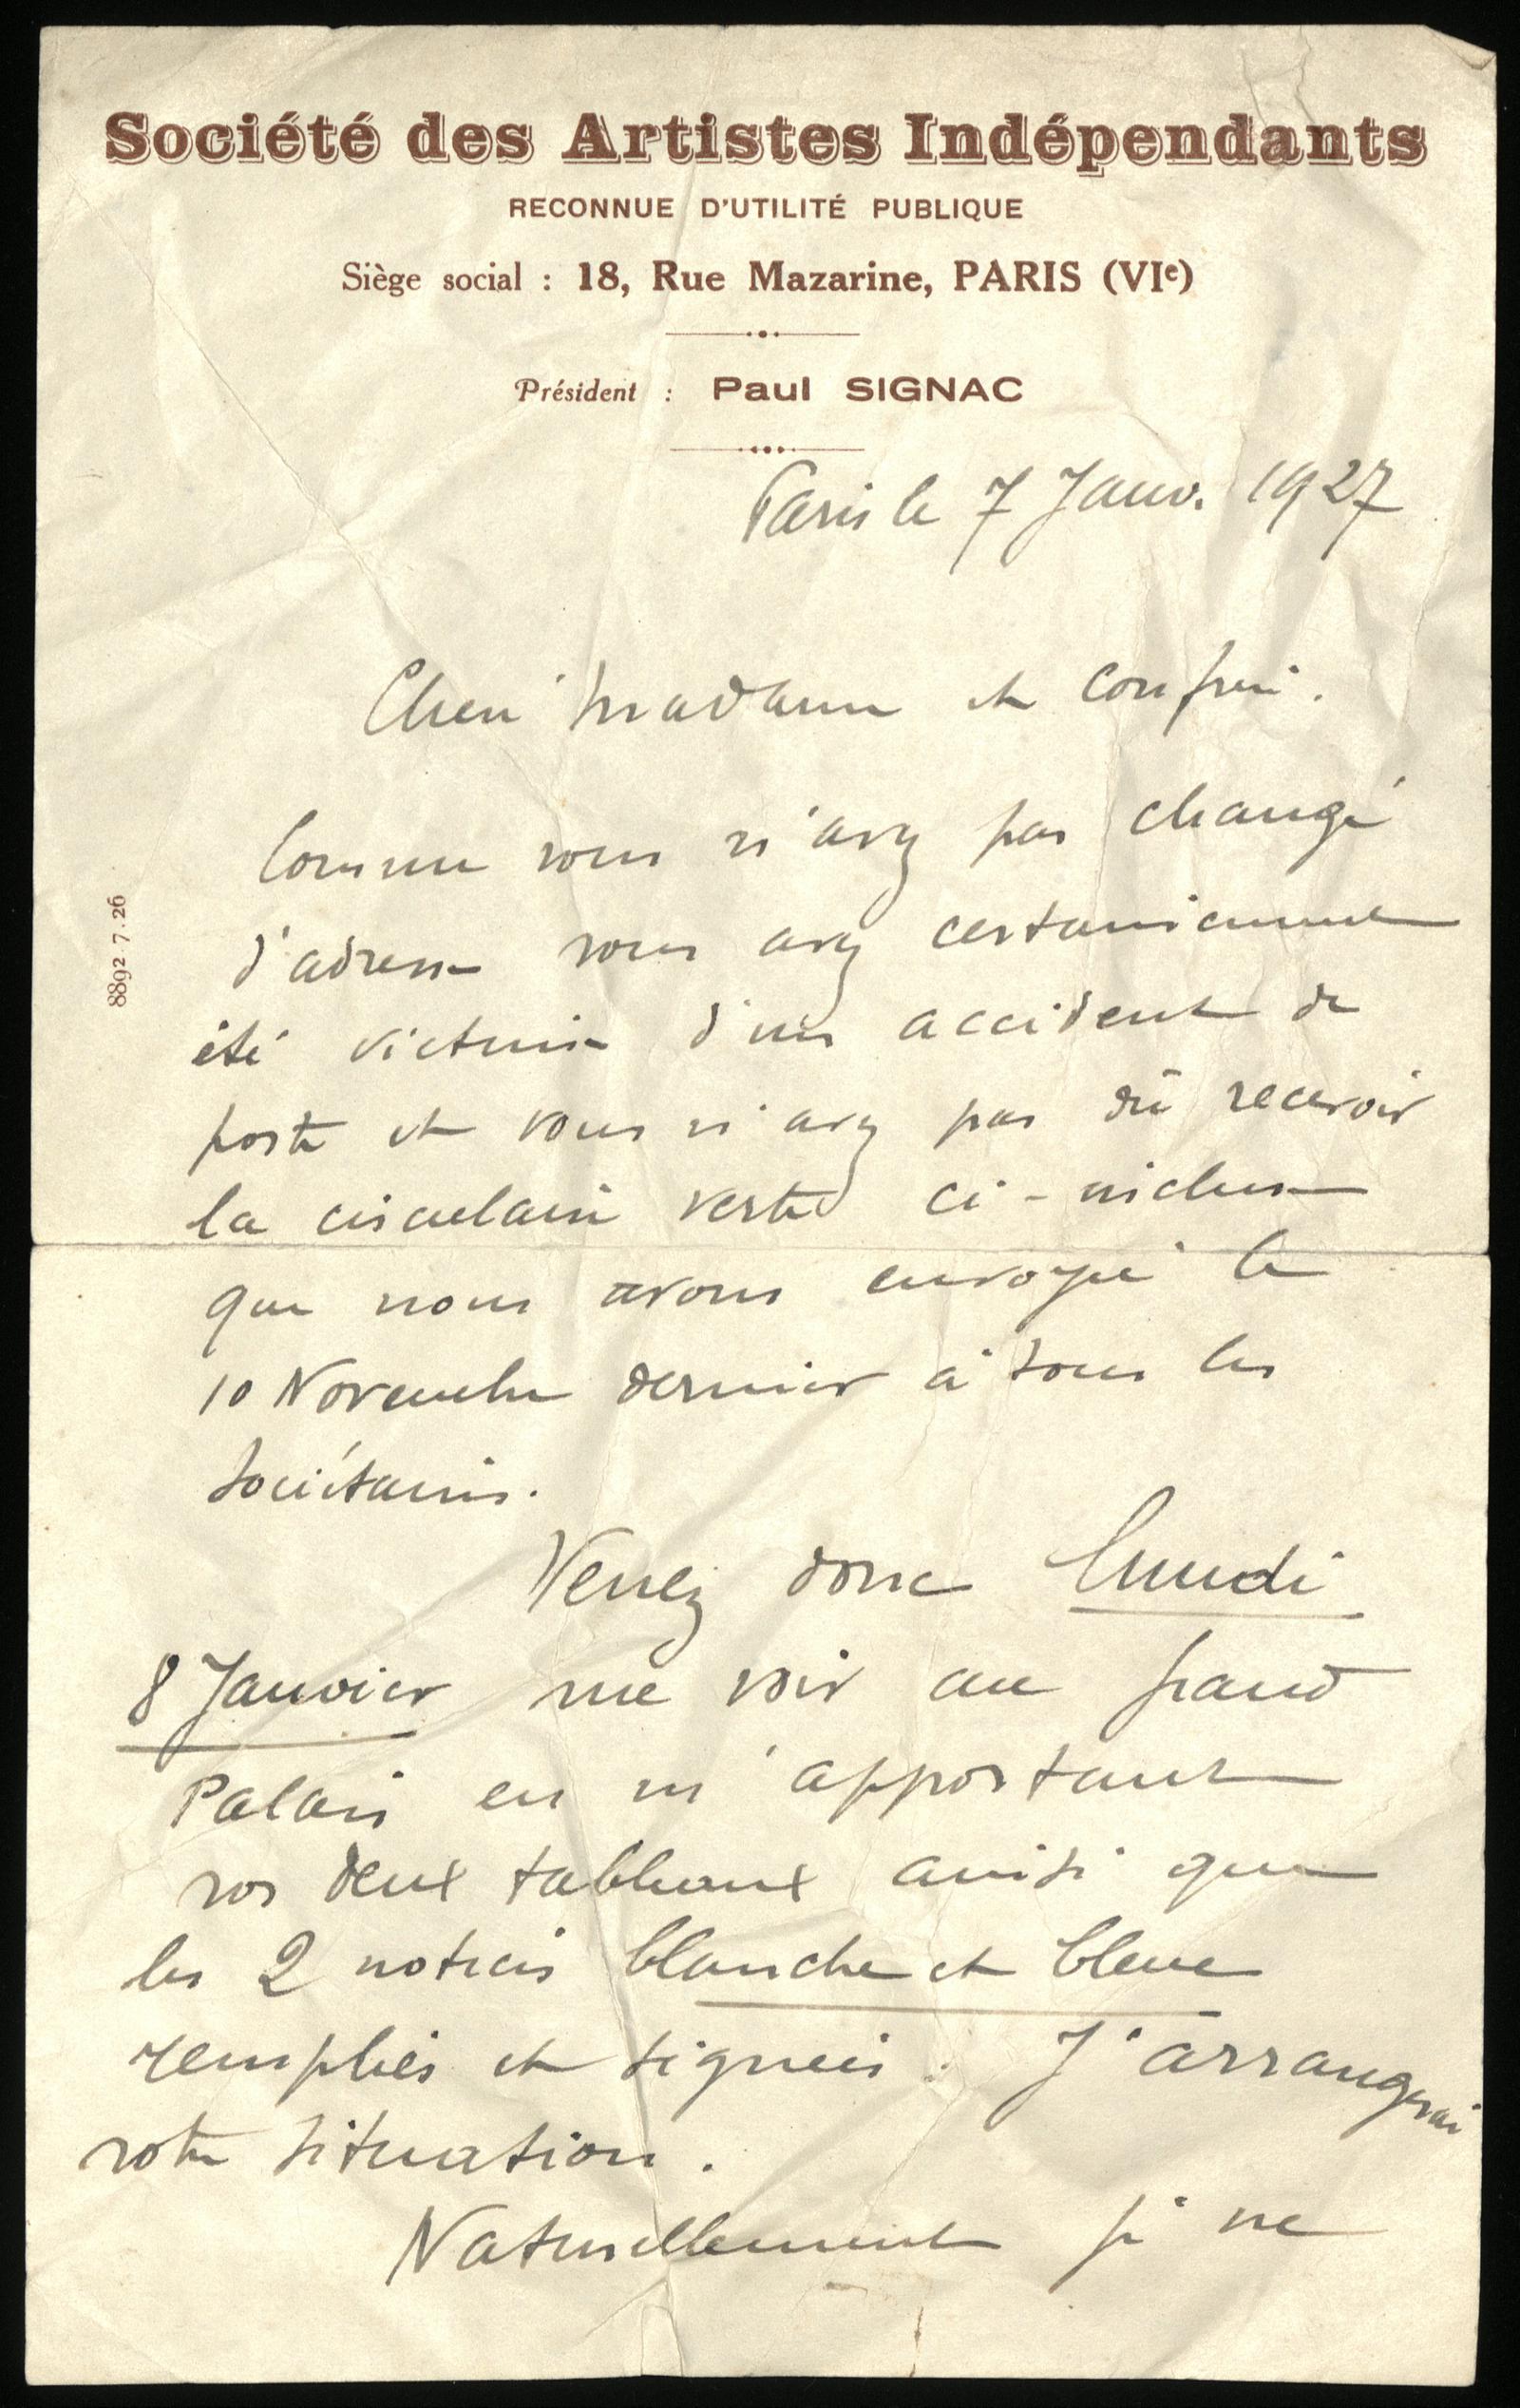 Société des Artistes Indépendants
RECONNUE D'UTILITÉ PUBLIQUE
Siège social : 18, Rue Mazarine, PARIS (VIe)
Président : Paul SIGNAC
Paris le 7 Janv. 1927
Chère Madame et Confrère.
Comme vous n'avez pas changé
d'adresse vous avez certainement
été victime d'un accident de
poste et vous n'avez pas dû recevoir
la circulaire verte ci-incluse
que nous avons envoyée le
10 Novembre dernier à tous les
sociétaires.
Venez donc lundi
8 Janvier me voir au grand
Palais en m'apportant
vos deux tableaux ainsi que
les 2 notices blanche et bleue
remplies et signées. J'arrangerai
votre situation.
Naturellement je ne
8892.7.26